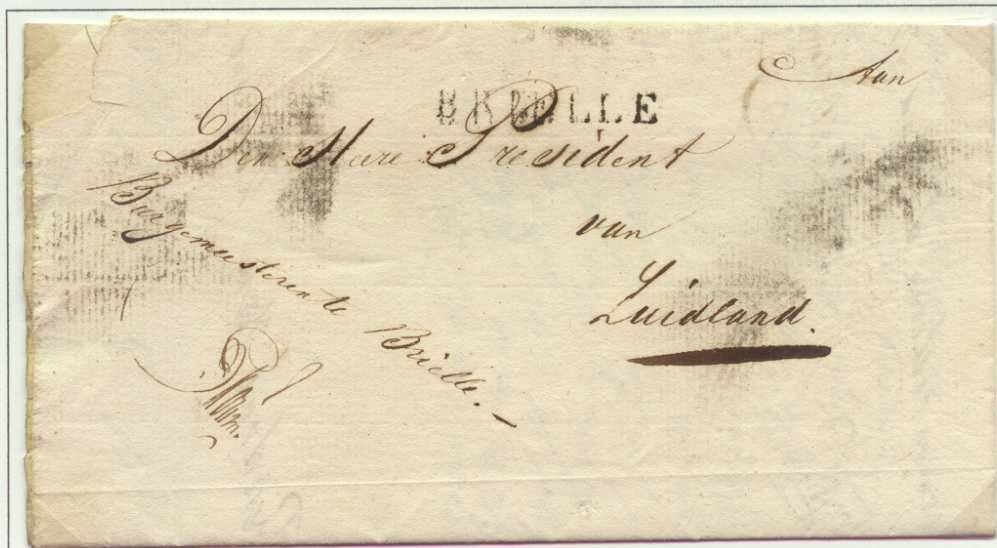 Aan
BRIELLE
Den Heere President
van
Zuidland.
Burgemeesteren te Brielle.